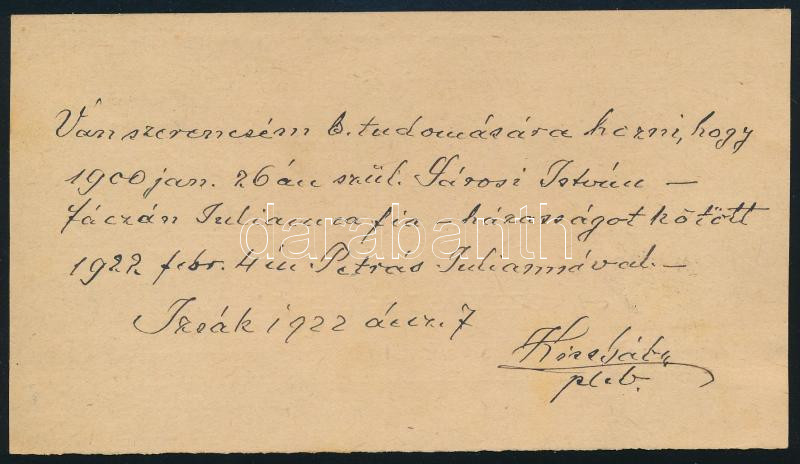 Van szerencsém b. tudomására hozni, hogy
1900 jan. 26 án szül. Sárosi István –
Fáczán Julianna fia – házasságot kötött
1922 febr. 4 én Petras Juliannával. –
Izsák 1922 7
pleb.
darabanth